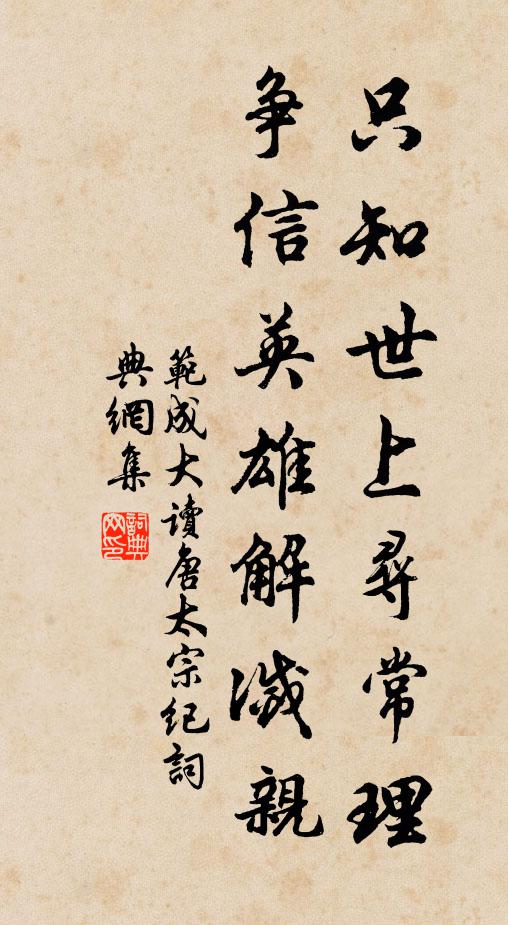 只知世上尋常理
爭信英雄解滅親
範成大讀唐太宗紀詞
典網集
詞典
网印